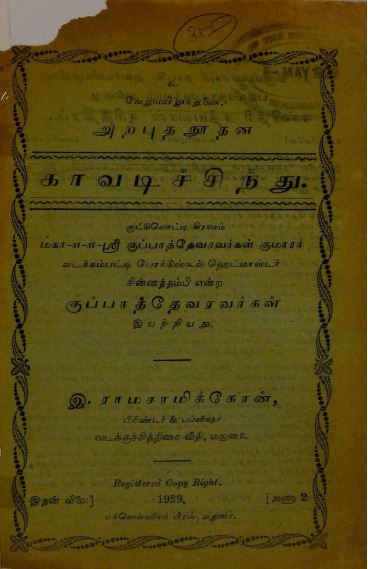 282
உ
வேலுமயிலுந்துணை.
அற்புதநூதன
காவடிச்சிந்து.
கிராமம்
மகா-ள-ள-ஸ்ரீ குப்பாத்தேவரவர்கள் குமாரர்
போர்டுஸ்கூல் ஹெட்மாஸ்டர்
சின்னத்தம்பி என்ற
குப்பாத்தேவரவர்கள்
இயற்றியது.
இ. ராமசாமிக்கோன்,
பிரிண்டர் & பப்ளிஷர்
வடக்குச்சித்திரை வீதி, மதுரை.
Registered Copy Right.
இதன் விலை] 1929. [அணா 2
எக்ஸெல்ஸியர் பிரஸ், மதுரை.